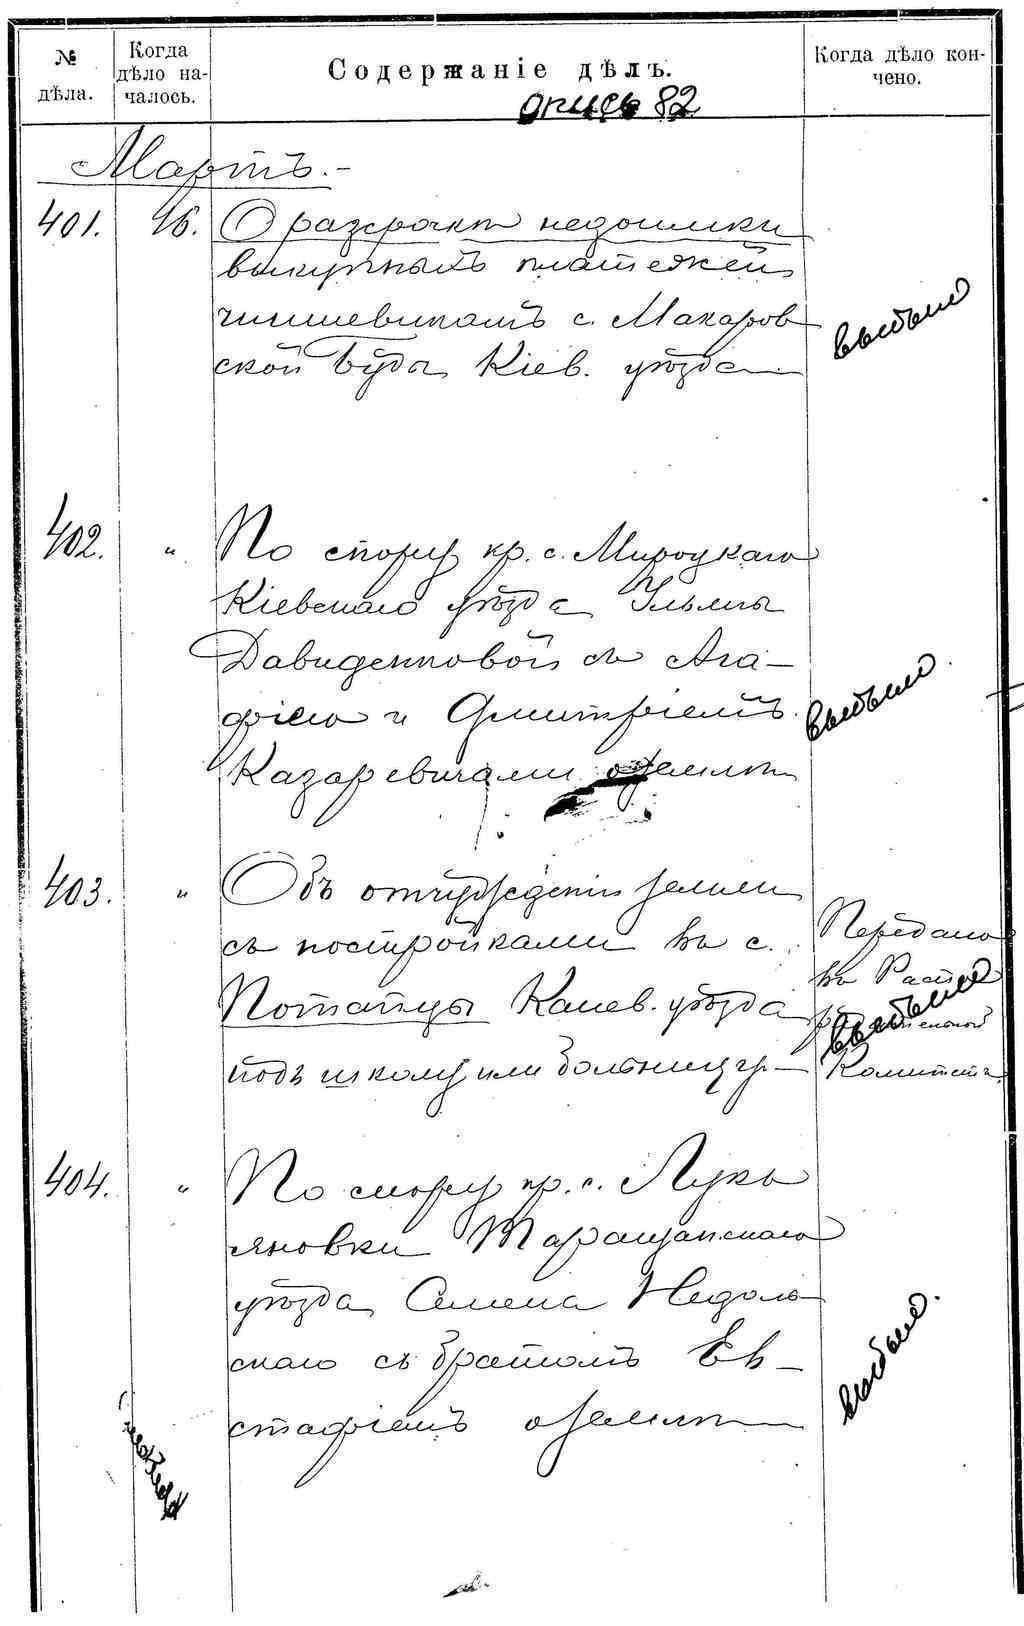 № дѣла.
Когда дѣло на-
чалось.
Содержаніе дѣлъ.
Когда дѣло кон-
чено.
опись 82
Мартъ.-
401. 16. О разсрочкѣ недоимки
выкупныхъ платежей
чиншевикамъ с. Макаров
ской Буды Кіев. уѣзда
выбыло
402. " По спору кр. с. Мироцкаго
Кіевскаго уѣзда Ульяны
Давиденковой съ Ага-
фіею и Дмитріемъ
Казаревичами о землѣ
выбыло
403. " Объ отчужденіи земли
съ постройками въ с.
Потапцы Канев. уѣзда
подъ школу или больницу-
Передано
въ Распо
рядительной
Комитетъ
выбыло
404. " По спору кр. с. Лукь
яновки Таращанскаго
уѣзда Семена Недоль
скаго съ братомъ Ев-
стафіемъ о землѣ
выбыло.